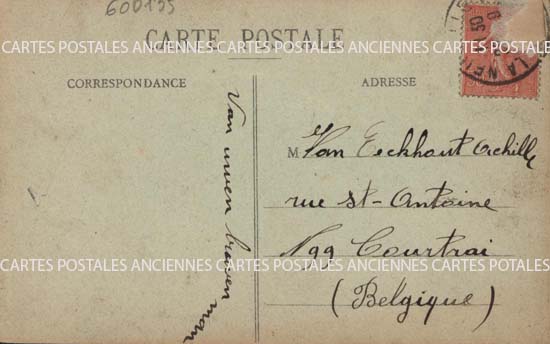 600135
CARTE POSTALE
CARTES POSTALES ANCIENNES CARTES POSTALES ANCIENNES CARTES POSTALES
CORRESPONDANCE
ADRESSE
LA NE
Van uwen braven man
M Van Eeckhout Achille
rue St-Antoine
N 99 Courtrai
CARTES POSTALES ANCIENNES CARTES POSTALES ANCIENNES CARTES POTALES
(Belgique)